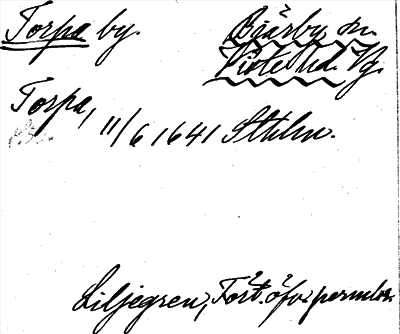 Torpa by. Bjärby sn.
Viste hd. Vg.
Torpa, 11/6 1641 Sthlm.
Liljegren, Fört. öfv. permbr.